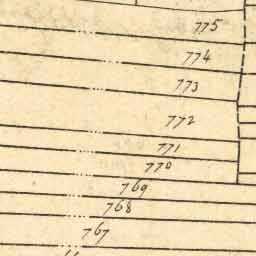 775
774
773
772
771
770
769
768
767